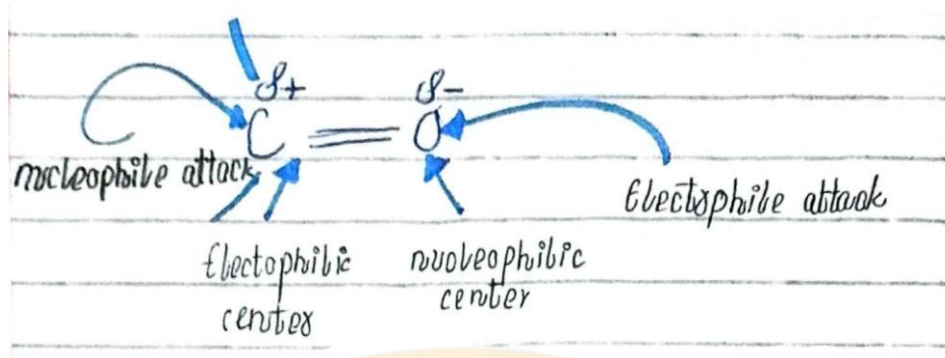 δ+ δ-
C = O
nucleophile attack
Electrophile attack
Electophilic
center
nucleophilic
center